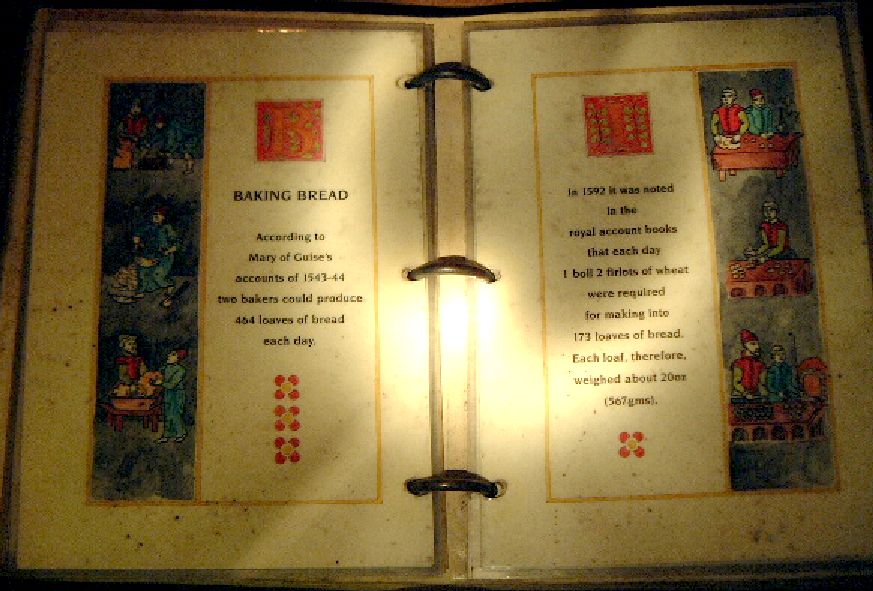 B
BAKING BREAD
According to
Mary of Guise's
accounts of 1543-44
two bakers could produce
464 loaves of bread
each day.
In 1592 it was noted
in the
royal account books
that each day
1 boll 2 firlots of wheat
were required
for making into
173 loaves of bread.
Each loaf, therefore,
weighed about 20oz
(567gms).